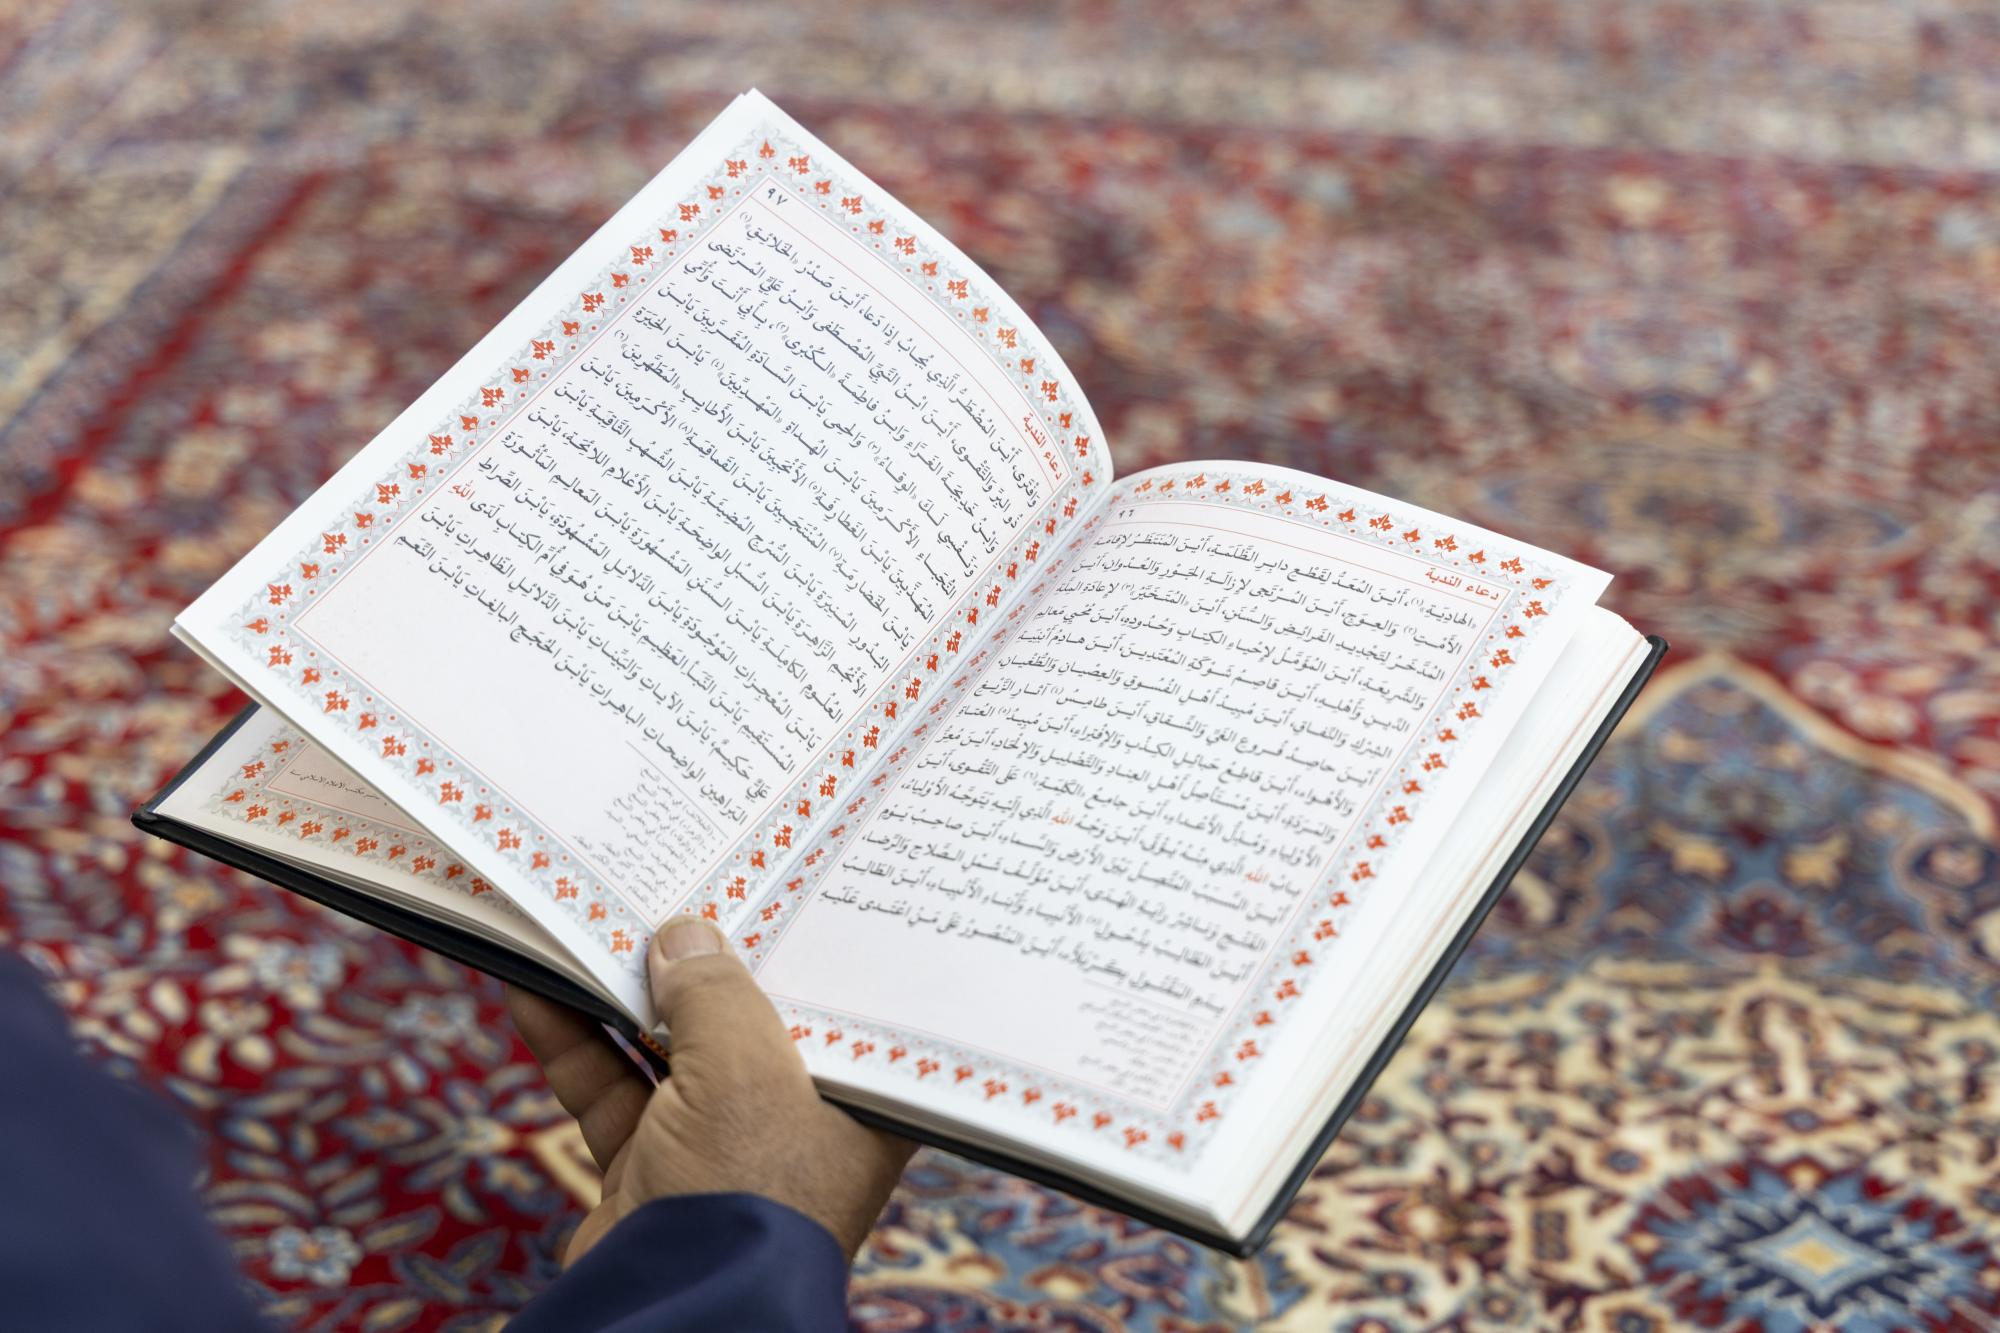 ٩٦
دعاء الندبة
الهادِيَةِ»(١)، أَيْنَ المُعَدُّ لِقَطْعِ دابِرِ الظَّلَمَةِ، أَيْنَ المُنْتَظَرُ لإِقامَةِ
الأَمْتِ(٢) وَالعِوَجِ، أَيْنَ المُرْتَجى لإِزالَةِ الجَوْرِ وَالعُدْوانِ، أَيْنَ
المُدَّخَرُ لِتَجْدِيدِ الفَرائِضِ وَالسُّنَنِ، أَيْنَ «المُتَخَيَّرُ»(٣) لإِعادَةِ المِلَّةِ
وَالشَّرِيعَةِ، أَيْنَ المُؤَمَّلُ لإِحْياءِ الكِتابِ وَحُدُودِهِ، أَيْنَ مُحْيِي مَعالِمِ
الدِّينِ وَأَهْلِهِ، أَيْنَ قاصِمُ شَوْكَةِ المُعْتَدِينَ، أَيْنَ هادِمُ أَبْنِيَةِ
الشِّرْكِ وَالنِّفاقِ، أَيْنَ مُبِيدُ أَهْلِ الفُسُوقِ وَالعِصْيانِ وَالطُّغْيانِ،
أَيْنَ حاصِدُ فُرُوعِ الغَيِّ وَالشِّقاقِ، أَيْنَ طامِسُ(٤) آثارِ الزَّيْغِ
وَالأَهْواءِ، أَيْنَ قاطِعُ حَبائِلِ الكِذْبِ وَالإِفْتِراءِ، أَيْنَ مُبِيدُ(٥) العُتاةِ
وَالمَرَدَةِ، أَيْنَ مُسْتَأْصِلُ أَهْلِ العِنادِ وَالتَّضْلِيلِ وَالإِلْحادِ، أَيْنَ مُعِزُّ
الأَوْلِياءِ وَمُذِلُّ الأَعْداءِ، أَيْنَ جامِعُ الكَلِمَةِ(٦) عَلَى التَّقْوى، أَيْنَ
بابُ اللهِ الَّذِي مِنْهُ يُؤْتى، أَيْنَ وَجْهُ اللهِ الَّذِي إِلَيْهِ يَتَوَجَّهُ الأَوْلِياءُ،
أَيْنَ السَّبَبُ المُتَّصِلُ بَيْنَ الأَرْضِ وَالسَّماءِ، أَيْنَ صاحِبُ يَوْمِ
الفَتْحِ وَناشِرُ رايَةِ الهُدى، أَيْنَ مُؤَلِّفُ شَمْلِ الصَّلاحِ وَالرِّضا،
أَيْنَ الطّالِبُ بِذُحُولِ(٧) الأَنْبِياءِ وَأَبْناءِ الأَنْبِياءِ، أَيْنَ الطّالِبُ
بِدَمِ المَقْتُولِ بِكَرْبَلاءَ، أَيْنَ المَنْصُورُ عَلى مَنِ اعْتَدى عَلَيْهِ
٩٧
دعاء الندبة
وَافْتَرى، أَيْنَ المُضْطَرُّ الَّذِي يُجابُ إِذا دَعا، أَيْنَ صَدْرُ «الخَلائِقِ»(١)
ذُو البِرِّ وَالتَّقْوى، أَيْنَ ابْنُ النَّبِيِّ المُصْطَفى وَابْنُ عَلِيٍّ المُرْتَضى
وَابْنُ خَدِيجَةَ الغَرّاءِ وَابْنُ فاطِمَةَ «الكُبْرى»(٢)، بِأَبِي أَنْتَ وَأُمِّي
وَنَفْسِي لَكَ «الوِقاءُ»(٣) وَالحِمى يَابْنَ السّادَةِ المُقَرَّبِينَ يَابْنَ
النُّجَباءِ الأَكْرَمِينَ يَابْنَ الهُداةِ «المَهْدِيِّينَ»(٤) يَابْنَ الخِيَرَةِ
المُهَذَّبِينَ يَابْنَ الغَطارِفَةِ(٥) الأَنْجَبِينَ يَابْنَ الأَطايِبِ «المُطَهَّرِينَ»(٦)
يَابْنَ الخَضارِمَةِ(٧) المُنْتَجَبِينَ يَابْنَ القَماقِمَةِ(٨) الأَكْرَمِينَ، يَابْنَ
البُدُورِ المُنِيرَةِ يَابْنَ السُّرُجِ المُضِيئَةِ يَابْنَ الشُّهُبِ الثّاقِبَةِ يَابْنَ
الأَنْجُمِ الزّاهِرَةِ يَابْنَ السُّبُلِ الواضِحَةِ يَابْنَ الأَعْلامِ اللاّئِحَةِ، يَابْنَ
العُلُومِ الكامِلَةِ يَابْنَ السُّنَنِ المَشْهُورَةِ يَابْنَ المَعالِمِ المَأْثُورَةِ
يَابْنَ المُعْجِزاتِ المَوْجُودَةِ يَابْنَ الدَّلائِلِ المَشْهُودَةِ، يَابْنَ الصِّراطِ
المُسْتَقِيمِ يَابْنَ النَّبَأِ العَظِيمِ يَابْنَ مَنْ هُوَ فِي أُمِّ الكِتابِ لَدَى اللهِ
عَلِيٌّ حَكِيمٌ، يَابْنَ الآياتِ وَالبَيِّناتِ يَابْنَ الدَّلائِلِ الظّاهِراتِ يَابْنَ
البَراهِينِ الواضِحاتِ الباهِراتِ يَابْنَ الحُجَجِ البالِغاتِ يَابْنَ النِّعَمِ